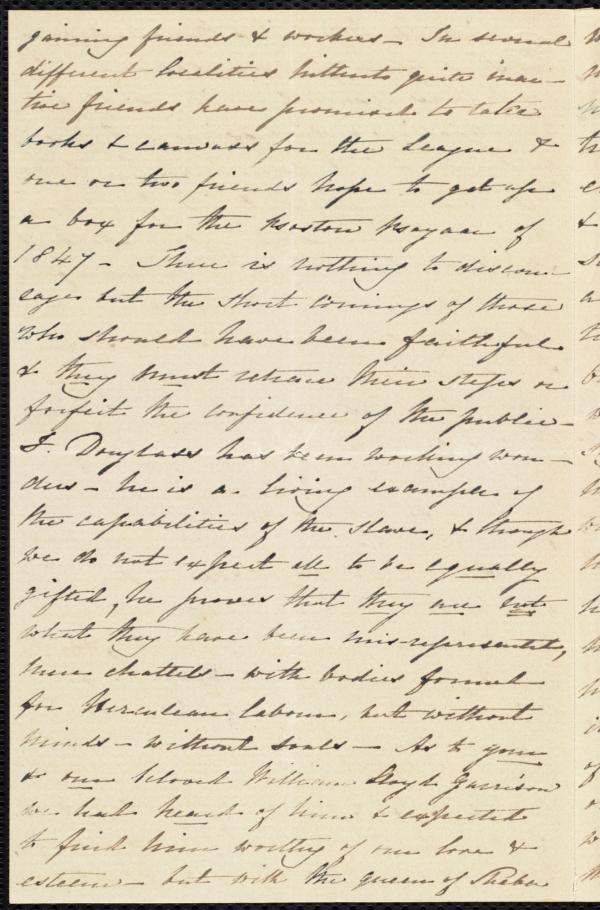 gaining friends & workers - In several
different localities hitherto quite inac-
tive friends have promised to take
books & canvass for the League &
one or two friends hope to get up
a box for the Boston Bazaar of
1847 - There is nothing to discou-
rage but the short comings of those
who should have been faithful
& they must retrace their steps or
forfeit the confidence of the public -
F. Douglass has been working won-
ders - he is a living example of
the capabilities of the slave, & though
we do not expect all to be equally
gifted, he proves that they are not
what they have been mis-represented,
mere chattels - with bodies formed
for Herculean labour, but without
minds - without souls - As to your
& our beloved William Lloyd Garrison
we had heard of him & expected
to find him worthy of our love &
esteem - but with the queen of Sheba